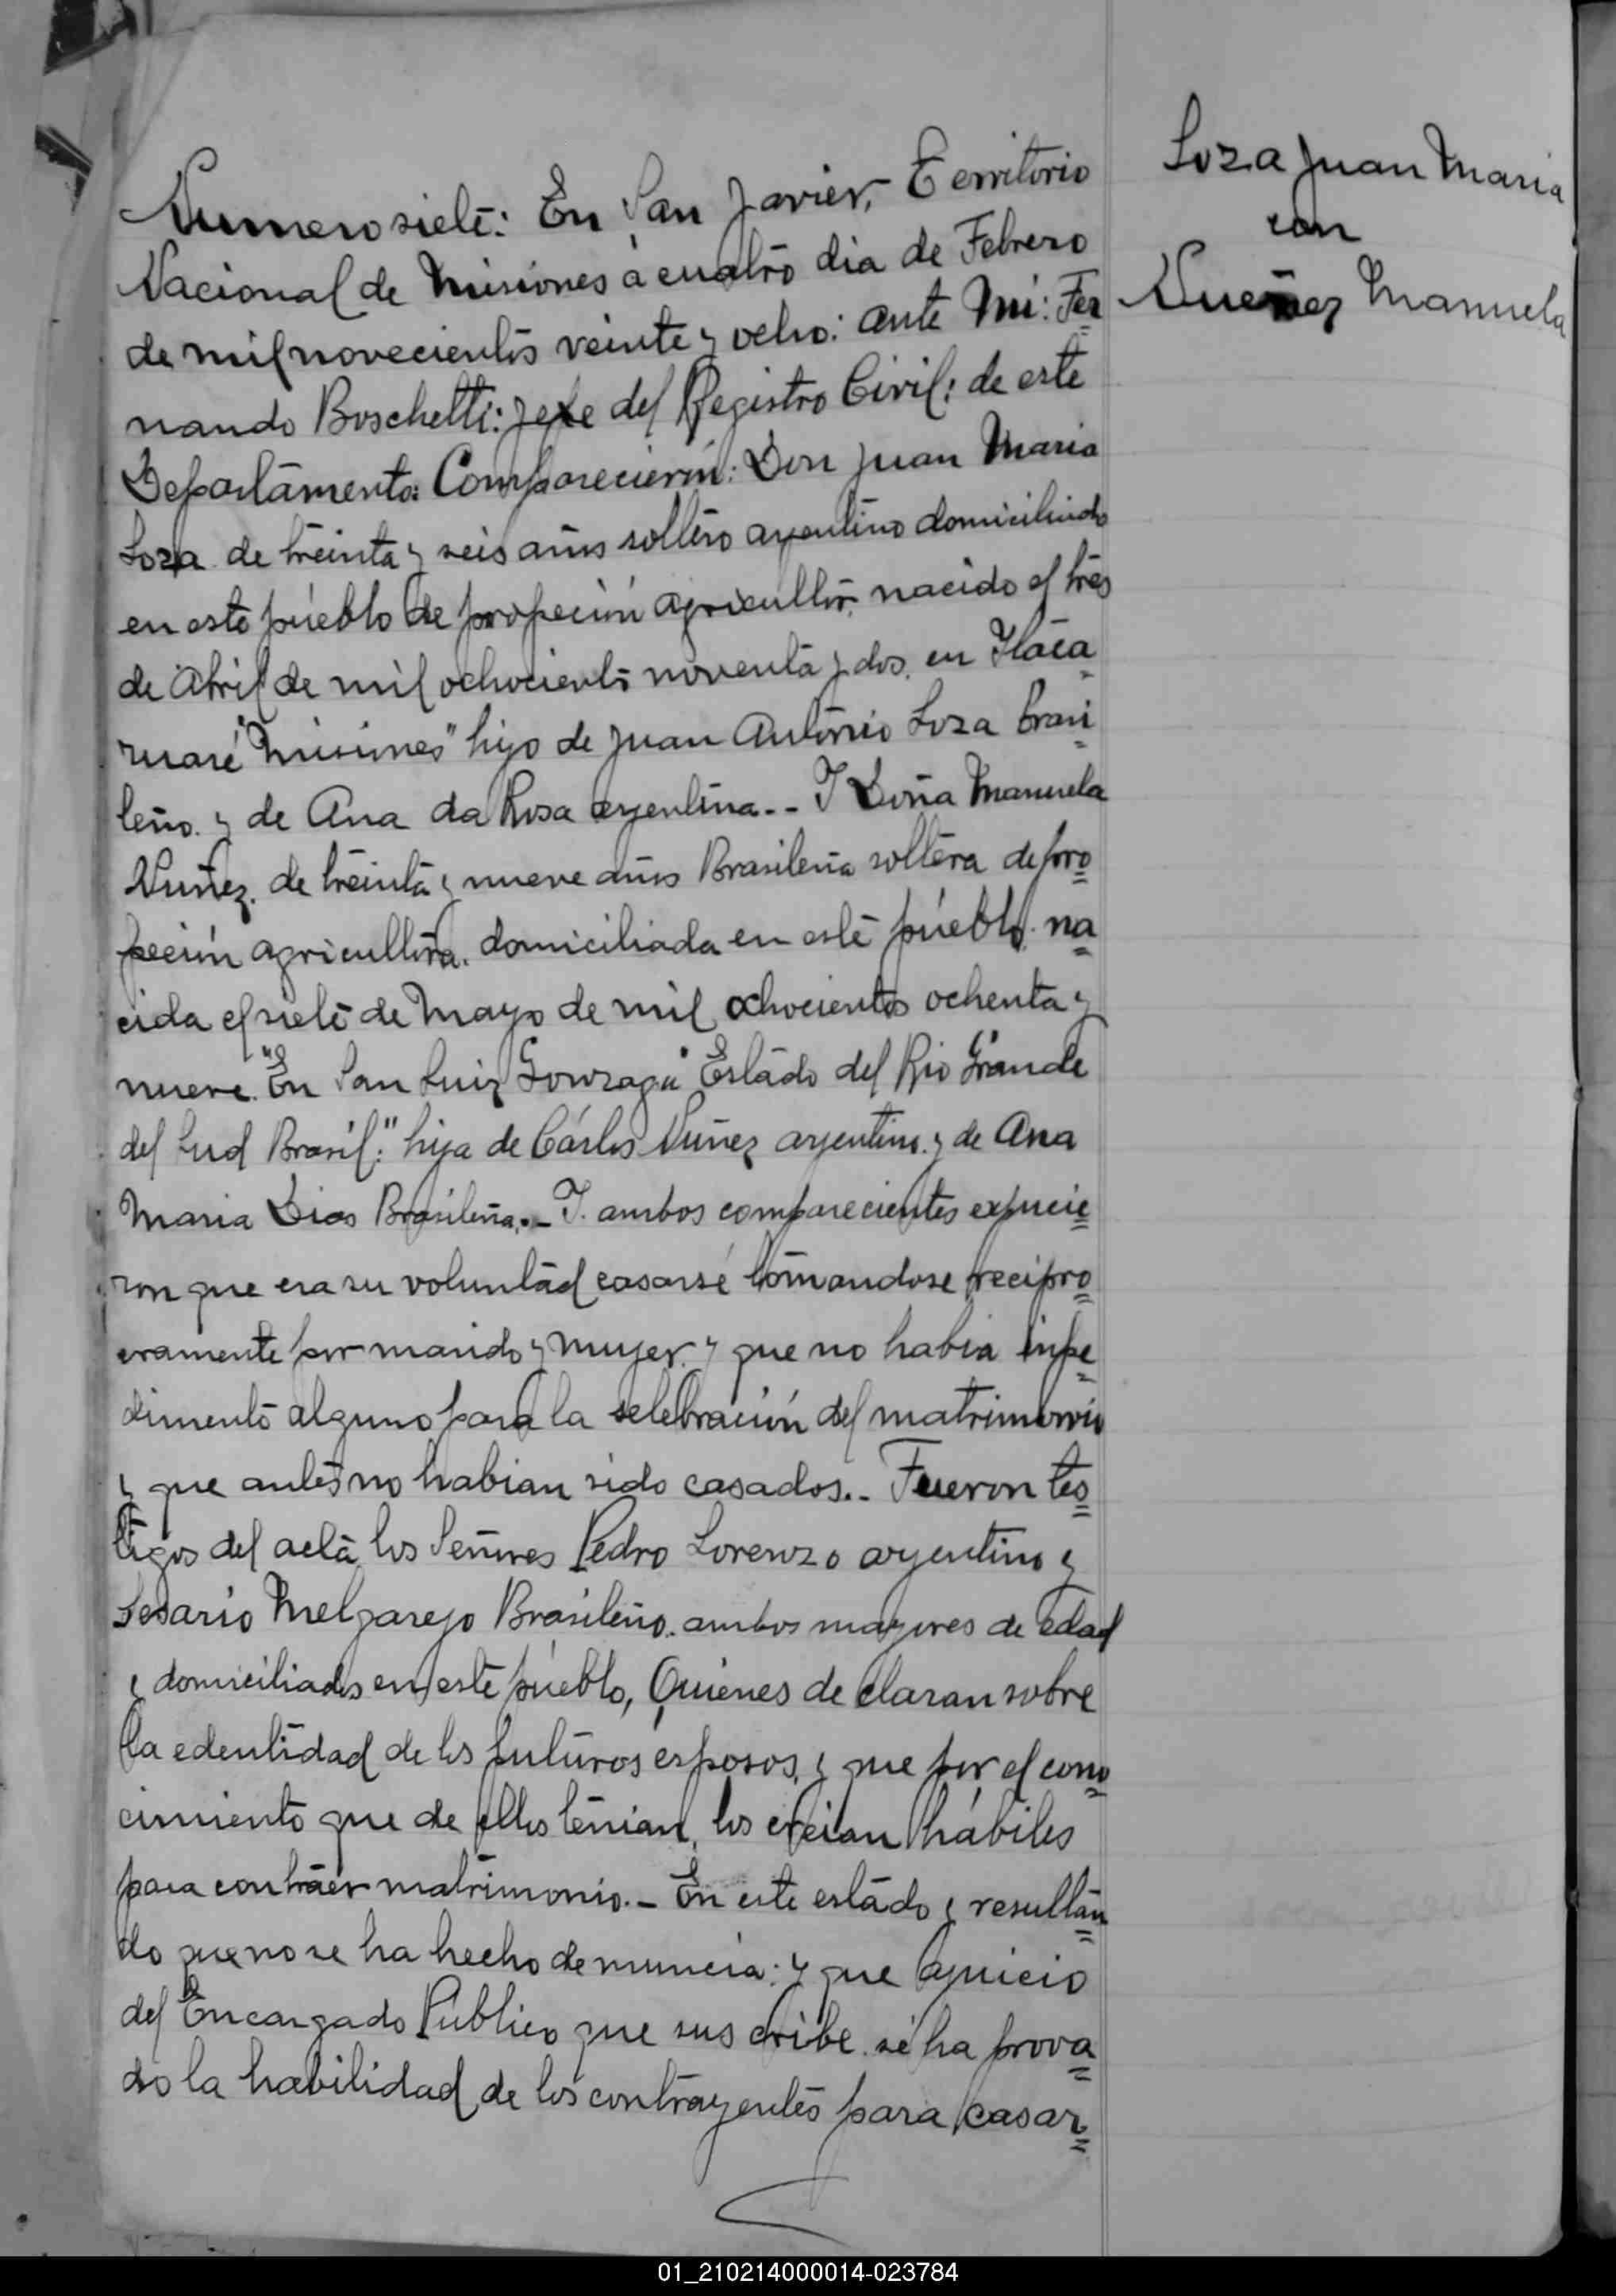 Loza Juan Maria
con
Nueñez Manuela
Numero siete: En San Javier, Territorio
Nacional de Misiones á cuatro dia de Febrero
de mil novecientos veinte y ocho: ante Mi: Fer
nando Boschetti: jefe del Registro Civil: de este
Departamento: Comparecieron: Don Juan Maria
Loza de treinta y seis años soltero argentino domiciliado
en este pueblo de propeción agricultor, nacido el tres
de Abril de mil ochocientos noventa y dos. en Itaca
ruaré "Misiones" hijo de Juan Antonio Loza brasi
leño. y de Ana da Rosa argentina.-- I Doña Manuela
Nuñez. de treinta y nueve años Brasileña soltera de pro
peción agricultora. domiciliada en este pueblo. na
cida el siete de Mayo de mil ochocientos ochenta y
nueve. "En San Luiz Gonzaga" Estado del Rio Grande
del Sud Brasil:" hija de Cárlos Nuñez argentino. y de Ana
Maria Dias Brasileña.- I. ambos comparecientes expucie
ron que era su voluntad casarse tomandose recipro
cramente por marido y mujer. y que no habia inpe
dimento alguno para la selebración del matrimonio
y que antes no habian sido casados.- Fueron tes
tigos del acta los Señores Pedro Lorenzo argentino y
Sesario Melgarejo Brasileño. ambos mayores de edad
y domiciliados en este pueblo, Quienes de claran sobre
la edentidad de los futuros esposos, y que por el cono
cimiento que de ellos tenian, los creian hábiles
para contraer matrimonio.- En este estado y resultan
do que no se ha hecho denuncia: y que ajuicio
del Encargado Público que sus cribe. se ha prova
do la habilidad de los contrayentes para casar
01_210214000014-023784